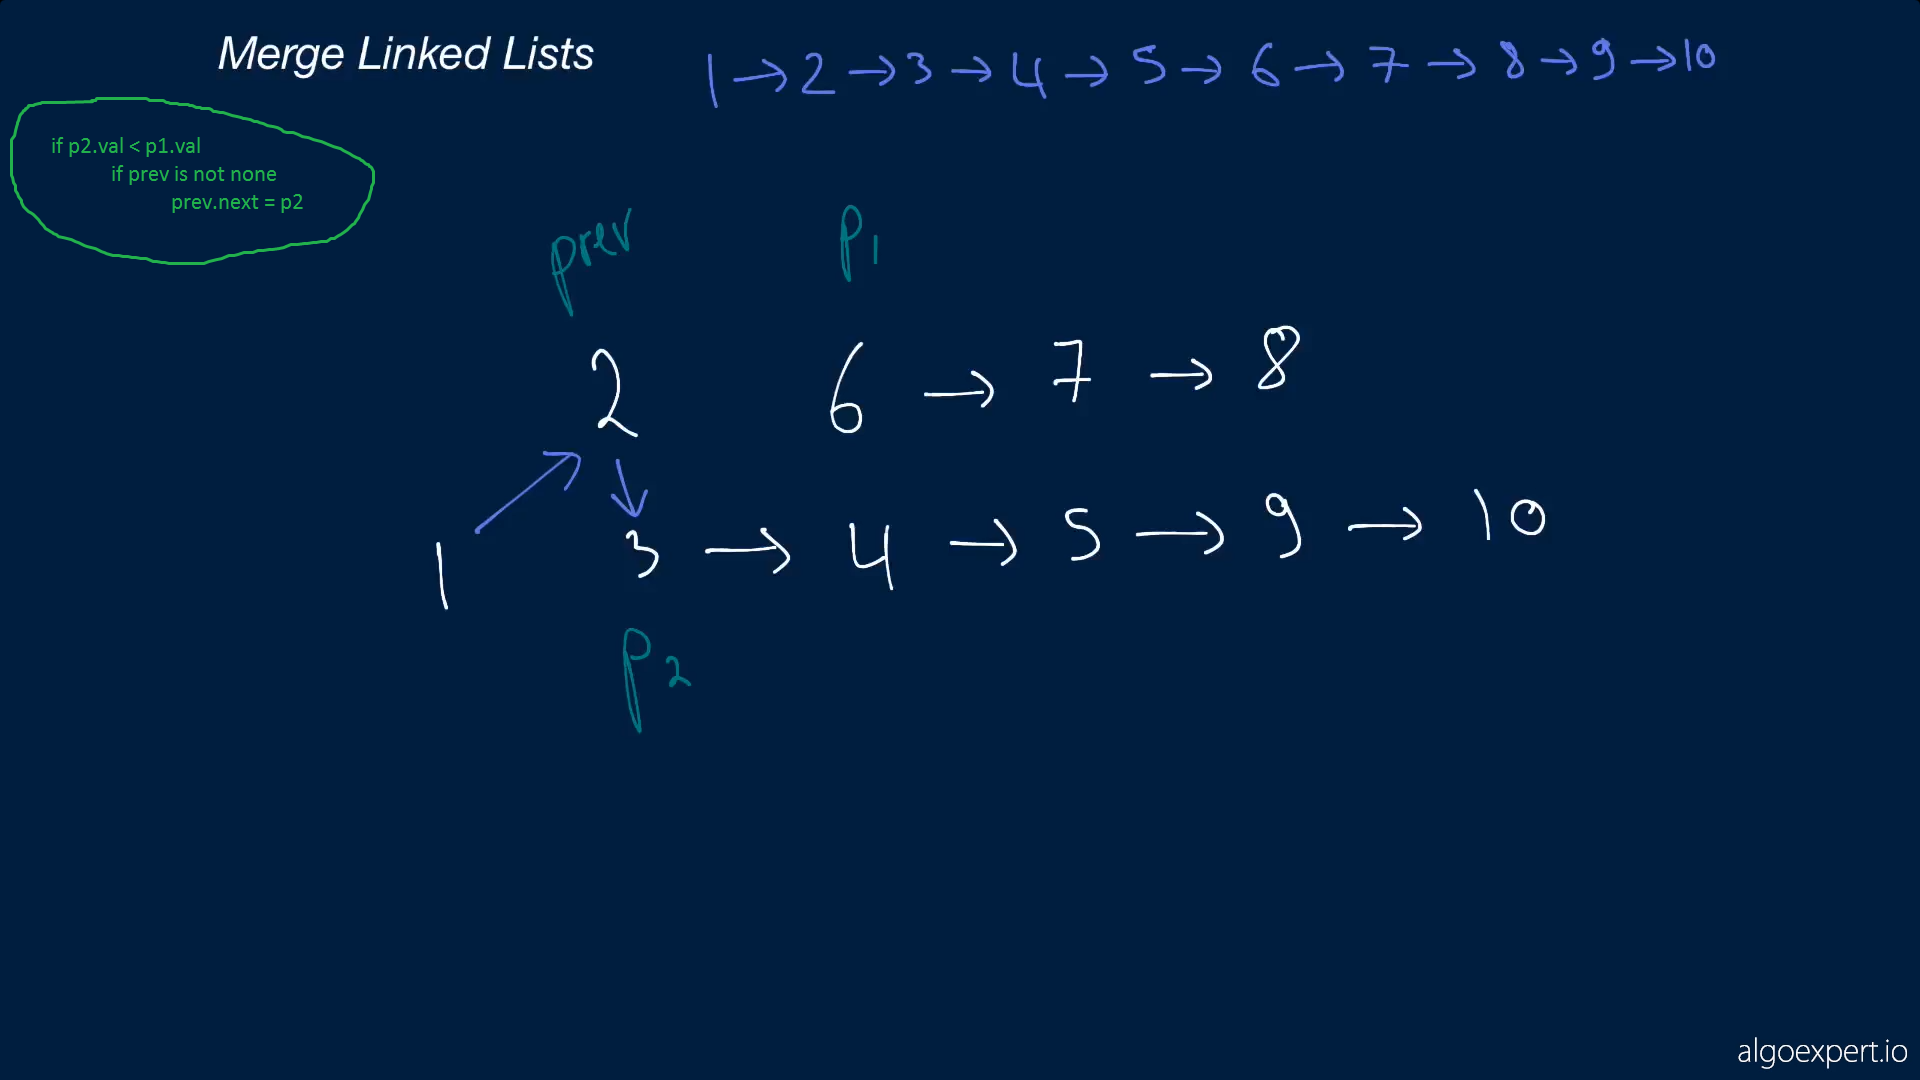 Merge Linked Lists
1 → 2 → 3 → 4 → 5 → 6 → 7 → 8 → 9 → 10
if p2.val < p1.val
if prev is not none
prev.next = p2
prev P1
2 6 → 7 → 8
1 3 → 4 → 5 → 9 → 10
P2
algoexpert.io